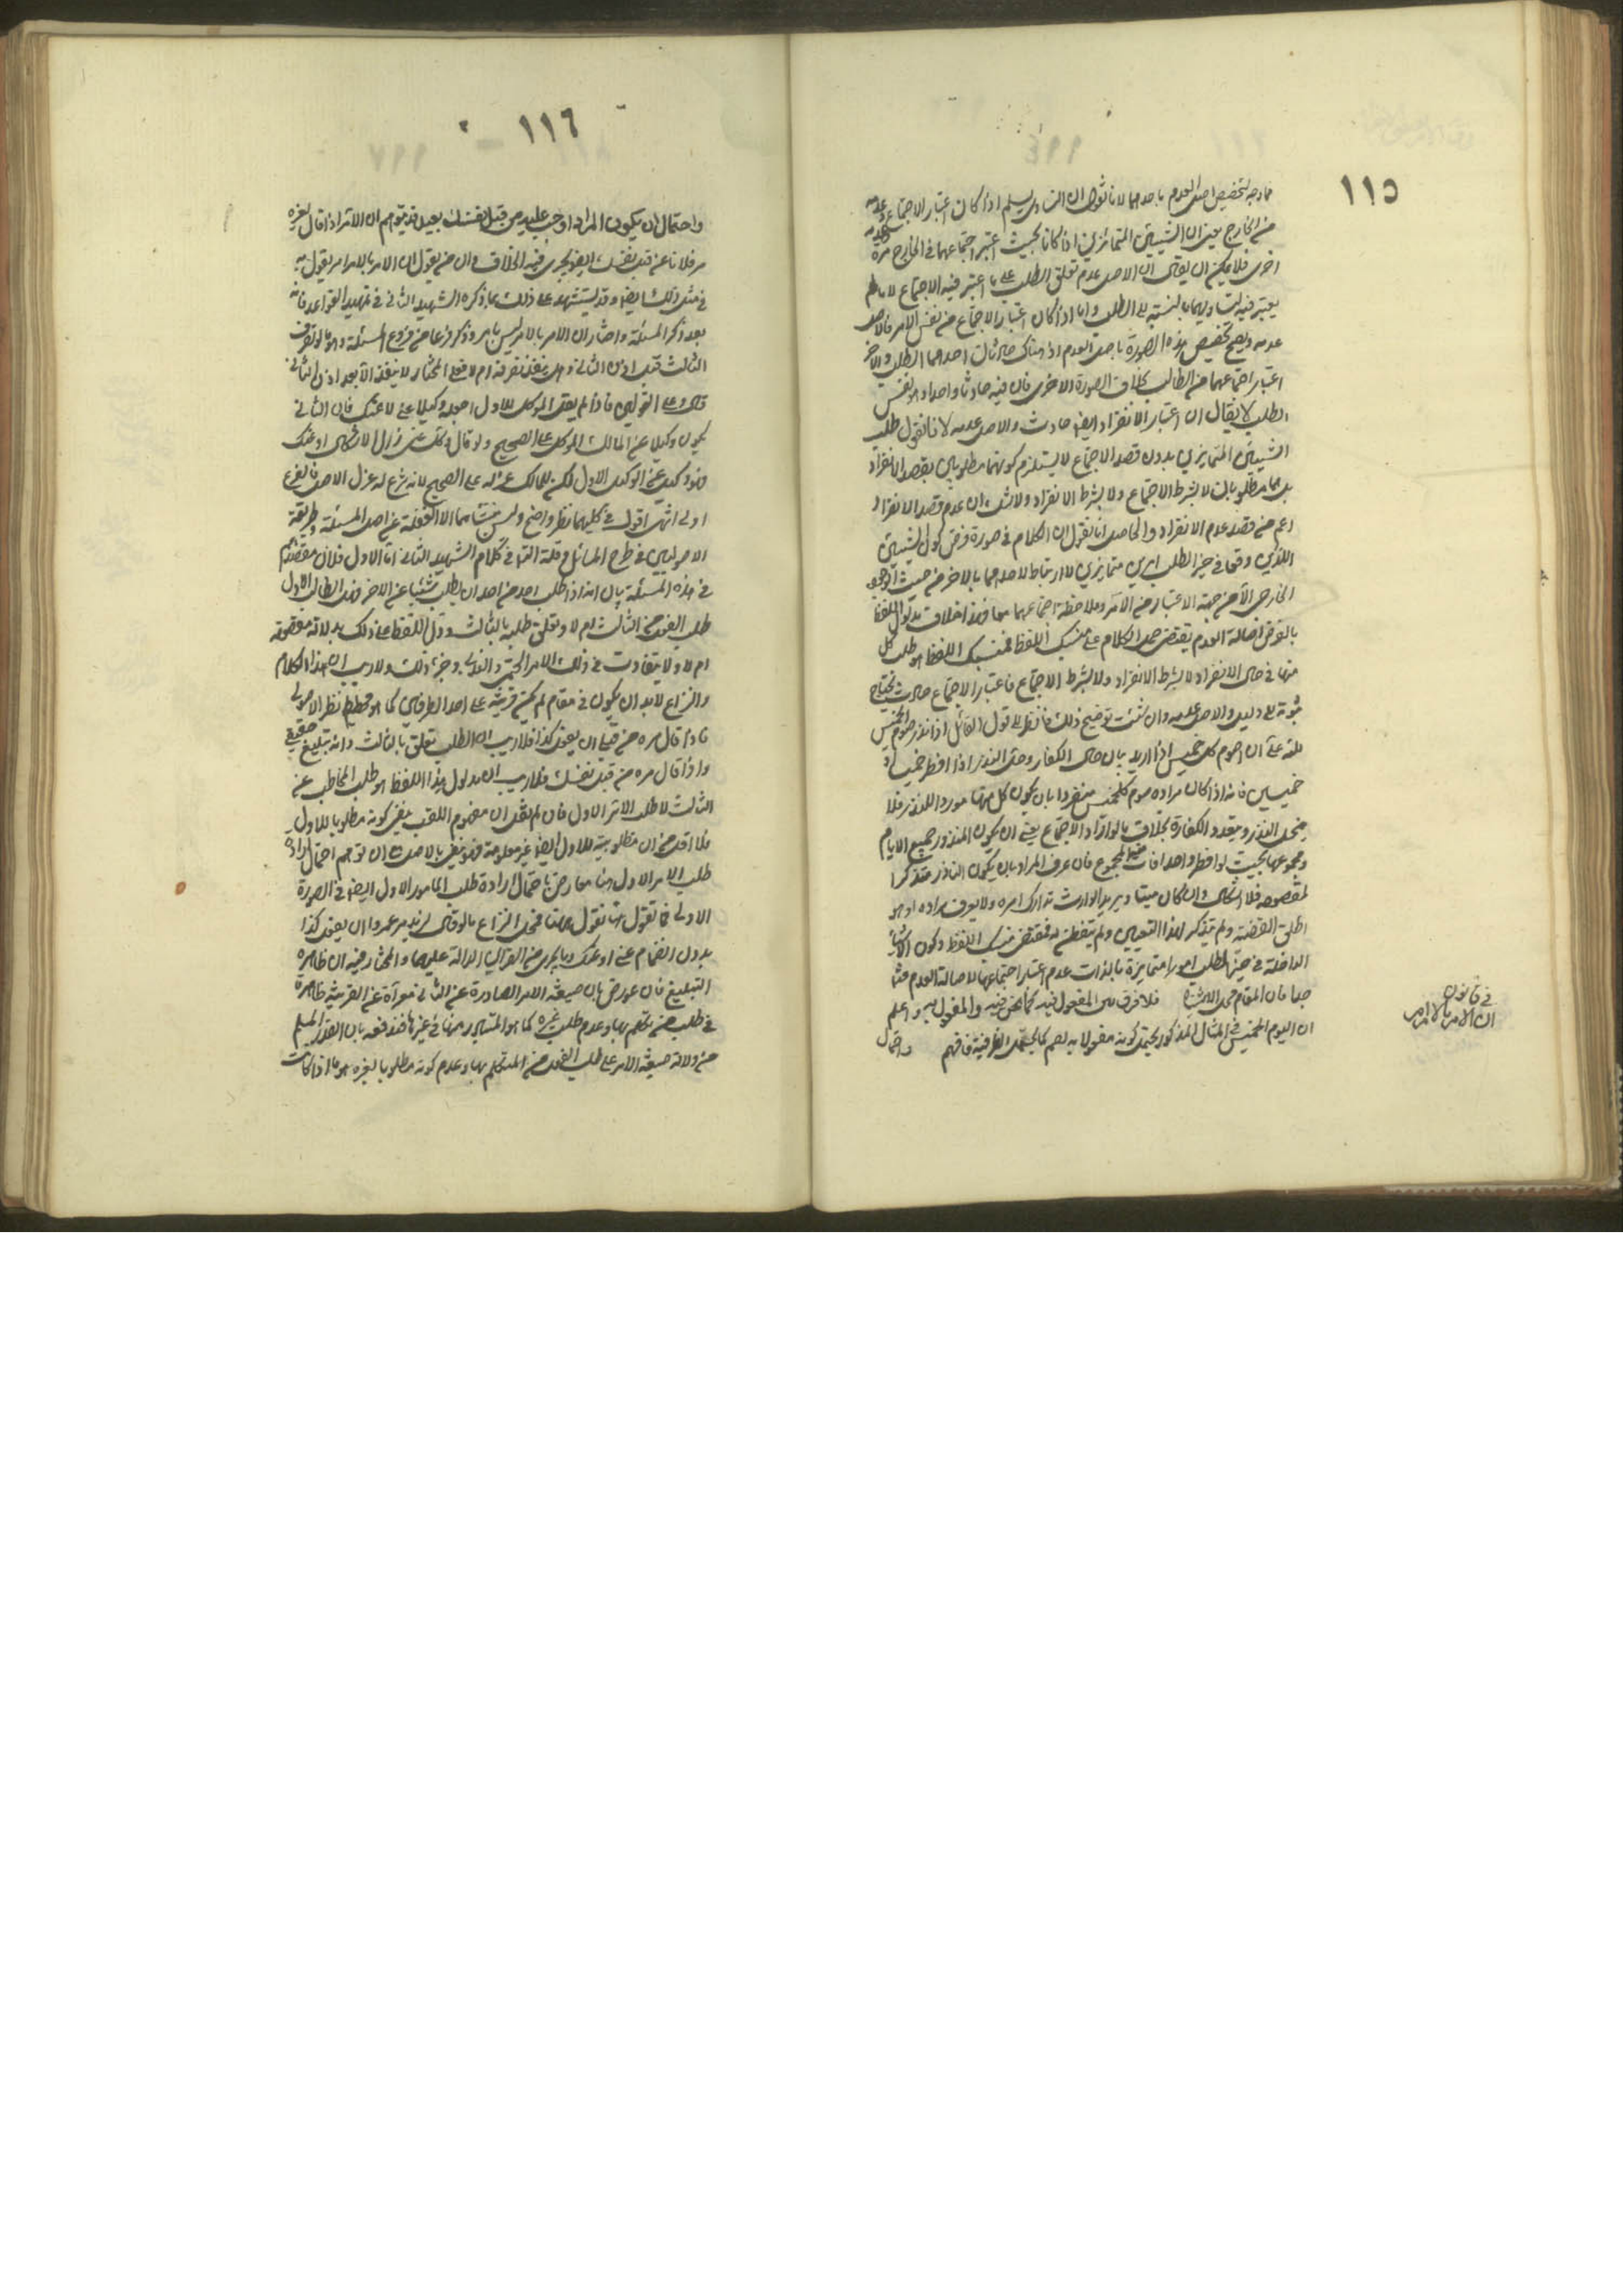 ١١٥
فما وجه تخصيص اصل العدم باحدهما لانا نقول ان التساوى يسلم اذا كان اعتبار الاجتماع وعدمه
من الخارج يعنى ان الشيئين المتمايزين اذا كانا بحيث اعتبر اجتماعهما فى الخارج مرة وعدمه
اخرى فلا يمكن ان يقال ان الاصل عدم تعلق الطلب على ما اعتبر فيه الاجتماع لا ما لم
يعتبر فيه لتساويهما بالنسبة الى الطلب واما اذا كان اعتبار الاجتماع من نفس الامر فالاصل
عدمه ويصح تخصيص هذه الصورة باصل العدم اذ هناك حادثان احدهما الطلب والآخر
اعتبار اجتماعهما من الطالب بخلاف الصورة الاخرى فان فيه حادثا واحدا وهو نفس
الطلب لا يقال ان اعتبار الانفراد ايضا حادث والاصل عدمه لانا نقول طلب
الشيئين المتمايزين بدون قصد الاجتماع لا يستلزم كونهما مطلوبين بقصد الانفراد
بل هما مطلوبان لا بشرط الاجتماع ولا بشرط الانفراد ولا شك ان عدم قصد الانفراد
اعم من قصد عدم الانفراد والحاصل انا نقول ان الكلام فى صورة فرض كون الشيئين
اللذين وقعا فى حيز الطلب امرين متمايزين لا ارتباط لاحدهما بالاخر من حيث الوجود
الخارجى الا من جهة الاعتبار من الآمر وملاحظة اجتماعهما معا وهذا خلاف مدلول اللفظ
بالفرض اصالة العدم يقتضى حمل الكلام على اللفظ اللفظ هو طلب كل
منهما فى حال الانفراد لا بشرط الانفراد ولا بشرط الاجتماع فاعتبار الاجتماع حادث يحتاج
ثبوته الى دليل والاصل عدمه وان شئت توضيح ذلك فانظر الى قول القائل اذا نذر صوم الخميس
لله على ان اصوم كل خميس اذا اريد بيان حال الكفارة وحل النذر اذا افطر خميسا او
خميسين فانه اذا كان مراده صوم كل خميس منفردا بان يكون كل منها موردا للنذر فلا
ينحل النذر ويتعدد الكفارة بخلاف ما لو اراد الاجتماع يعنى ان يكون المنذور جميع الايام
ومجموعها بحيث لو افطر واحدا فات منه المجموع فان عرف المراد بان يكون الناذر متذكرا
لمقصوده فلا اشكال وان كان ميتا ويريد الوارث تدارك امره ولا يعرف مراده او هو
اطلق القضية ولم يتذكر لهذا التعيين ولم يتفطن له فمقتضى اللفظ وكون الاشياء
الداخلة فى حيز الطلب امورا متمايزة بالذات عدم اعتبار اجتماعها لاصالة العدم فتأمل
جدا فان المقام محل الاشتباه فلا فرق بين المفعول فيه كما نحن فيه والمفعول به واعلم
ان اليوم الخميس فى المثال المذكور يحتمل كونه مفعولا به لصم كما يحتمل الظرفية فافهم واحتمال
فى قانون
ان الامر بالامر امر
١١٦
واحتمال ان يكون المراد اوجب عليه من قبل نفسك بعيد قد يتوهم ان الآمر اذا قال لغيره
مر فلانا عن قبل نفسك ايضا يجرى فيه الخلاف وان من يقول ان الامر بالامر امر يقول به
فى مثل ذلك ايضا وقد يستشهد على ذلك بما ذكره الشهيد الثانى فى تمهيد القواعد فانه
بعد ذكر المسئلة واختار ان الامر بالامر ليس بامر وذكر فرعا من فروع المسئلة وهو ما لو تصرف
الثالث قبل اذن الثانى هل ينفذ تصرفه ام لا فعلى المختار لا ينفذ الا بعد اذن الثانى
قال وعلى القولين فاذا لم يقل الموكل للاول اجعله وكيلا عنى لا عنك فان الثانى
يكون وكيلا عن المالك الموكل على الصحيح ولو قال وكله عنى زال الاشكال او عنك
فهو وكيل عن الوكيل الاول لكن للمالك عزله على الصحيح لانه شرع له عزل الاصل فالفرع
اولى انتهى اقول فى كليهما نظر واضح وليس منشأهما الا الغفلة عن اصل المسئلة وطريقة
الاصوليين فى طرح المسائل وقلة التأمل فى كلام الشهيد الثانى اما الاول فلان مقصدهم
فى هذه المسئلة بيان انه اذا طلب احد من احد ان يطلب شيئا عن الاخر فهل الطالب الاول
طلب الفعل من الثالث ام لا وتعلق طلبه بالثالث ودل اللفظ على ذلك بدلالة مقصودة
ام لا ولا يتفاوت فى ذلك الامر الحتمى والندبى وغير ذلك ولا ريب ان هذا الكلام
والنزاع لا بد ان يكون فى مقام لم يكن قرينة على احد الطرفين كما هو مطمح نظر الاصولى
فاذا قال مره من قبلى ان يفعل كذا فلا ريب ان الطلب تعلق بالثالث وانه تبليغ حقيقى
واذا قال مره من قبل نفسك فلا ريب ان مدلول هذا اللفظ هو طلب المخاطب عن
الثالث لا طلب الآمر الاول فان لم نقل ان مفهوم اللقب ينفى كونه مطلوبا للاول
فلا اقل من ان مطلوبيته للاول ايضا غير معلومة فهو ينفى بالاصل مع ان توهم احتمال ارادة
طلب الآمر الاول هنا معارض باحتمال ارادة طلب المأمور الاول ايضا فى الصورة
الاولى فما تقول هنا نقول هناك فمحل النزاع ما لو قال لزيد مر عمروا ان يفعل كذا
بدون انضمام عنى او عنك وما يجرى مجراهما من القرائن الدالة عليهما والمختار فيه ان ظاهره
التبليغ فان عورض بان صيغة الامر الصادرة عن الثانى معراة عن القرينة ظاهرة
فى طلب من تكلم بها وعدم طلب غيره كما هو المتبادر منها فى غيرها فندفعه بان القدر المسلم
من دلالة صيغة الامر على طلب الفعل من المتكلم بها وعدم كونه مطلوبا لغيره هو ما اذا كانت